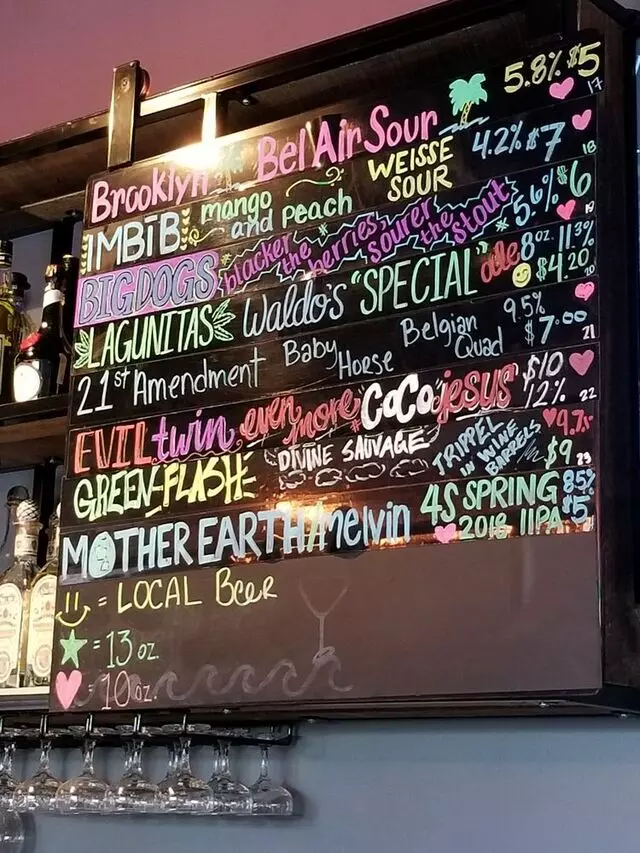 Brooklyn Bel Air Sour 5.8% $5 17
IMBĪB mango and peach WEISSE SOUR 4.2% $7 18
BIG DOGS blacker the berries, sourer the stout 5.6% $6 19
LAGUNITAS Waldo's "SPECIAL" ale 8oz. 11.3% $4.20 20
21st Amendment Baby Horse Belgian Quad 9.5% $7.00 21
EVIL twin even more COCO jesus $10 12% 22
GREEN-FLASH DIVINE SAUVAGE TRIPPEL IN WINE BARRELS 9.7% $9 23
MOTHER EARTH//melvin 4S SPRING 2018 IIPA 85% $5
= LOCAL BEER
= 13 oz
= 10 oz